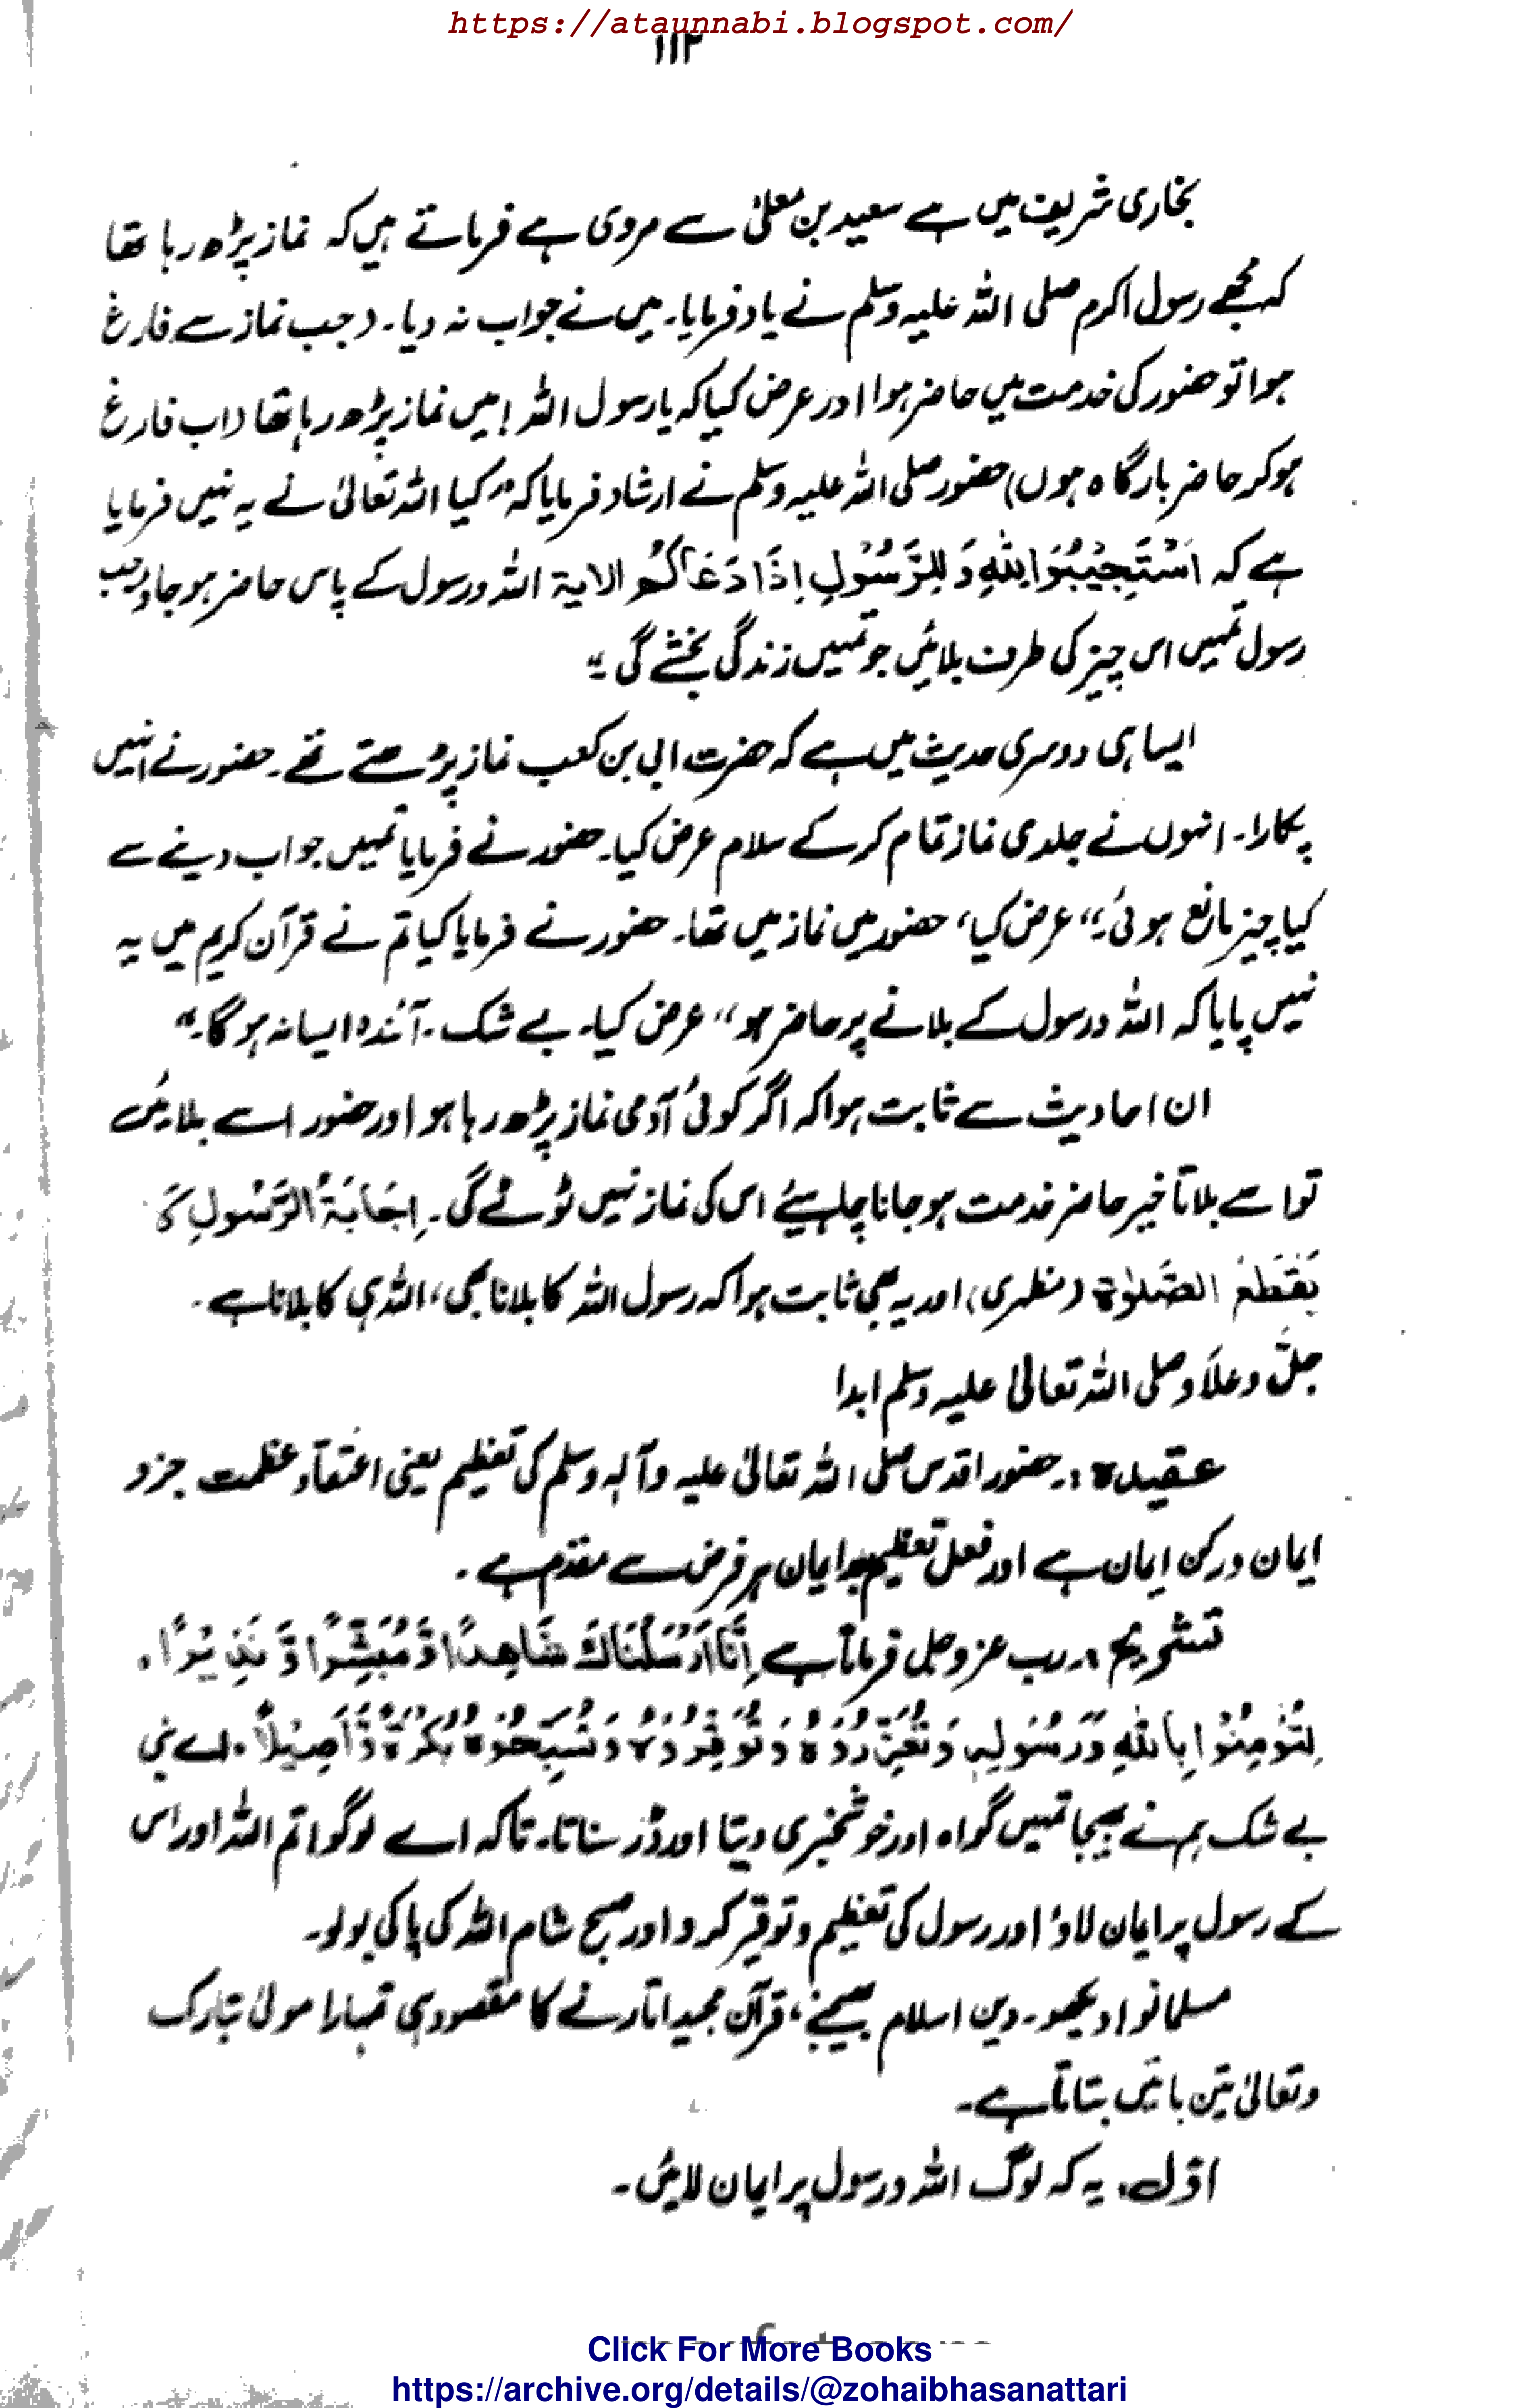 https://ataunnabi.blogspot.com/
۱۱۲
بخاری شریف میں ہے سعید بن معلیٰ سے مروی ہے فرماتے ہیں کہ نماز پڑھ رہا تھا
کہ مجھے رسول اکرم صلی اللہ علیہ وسلم نے یاد فرمایا۔ میں نے جواب نہ دیا۔ (جب نماز سے فارغ
ہوا تو حضور کی خدمت میں حاضر ہوا اور عرض کیا کہ یا رسول اللہ! میں نماز پڑھ رہا تھا (اب فارغ
ہو کر حاضر بارگاہ ہوں) حضور صلی اللہ علیہ وسلم نے ارشاد فرمایا کہ "کیا اللہ تعالیٰ نے یہ نہیں فرمایا
ہے کہ اَسْتَجِیْبُوْا لِلّٰہِ وَ لِلرَّسُوْلِ اِذَا دَعَاکُمْ الایۃ اللہ و رسول کے پاس حاضر ہو جاؤ جب
رسول تمہیں اس چیز کی طرف بلائیں جو تمہیں زندگی بخشے گی۔"
ایسا ہی دوسری حدیث میں ہے کہ حضرت ابی بن کعب نماز پڑھتے تھے۔ حضور نے انہیں
پکارا۔ انہوں نے جلدی نماز تمام کر کے سلام عرض کیا۔ حضور نے فرمایا تمہیں جواب دینے سے
کیا چیز مانع ہوئی؟" عرض کیا، حضور میں نماز میں تھا۔ حضور نے فرمایا کیا تم نے قرآن کریم میں یہ
نہیں پایا کہ اللہ و رسول کے بلانے پر حاضر ہو" عرض کیا۔ بے شک۔ آئندہ ایسا نہ ہو گا۔"
ان احادیث سے ثابت ہوا کہ اگر کوئی آدمی نماز پڑھ رہا ہو اور حضور اسے بلائیں
تو اسے بلا تاخیر حاضر خدمت ہو جانا چاہیئے اس کی نماز نہیں ٹوٹے گی۔ اِجَابَۃُ الرَّسُولِ لَا
یَقْطَعُ الصَّلٰوۃَ (مظہری) اور یہ بھی ثابت ہوا کہ رسول اللہ کا بلانا بھی، اللہ ہی کا بلانا ہے۔
جلّ و علَا و صلی اللہ تعالیٰ علیہ وسلم ابدا
عقیدہ:۔ حضور اقدس صلی اللہ تعالیٰ علیہ و آلہٖ وسلم کی تعظیم یعنی اعتقادِ عظمت جزو
ایمان و رکن ایمان ہے اور فعل تعظیم بعد ایمان ہر فرض سے مقدم ہے۔
تشریح:۔ رب عز و جل فرماتا ہے اِنَّا اَرْسَلْنَاكَ شَاهِدًا وَّ مُبَشِّرًا وَّ نَذِیْرًا۔
لِتُؤْمِنُوْا بِاللّٰهِ وَ رَسُوْلِہٖ وَ تُعَزِّرُوْہُ وَ تُوَقِّرُوْہُ وَ تُسَبِّحُوْہُ بُکْرَۃً وَّ اَصِیْلًا۔ اے نبی
بے شک ہم نے بھیجا تمہیں گواہ اور خوشخبری دیتا اور ڈر سناتا۔ تاکہ اے لوگو! تم اللہ اور اس
کے رسول پر ایمان لاؤ اور رسول کی تعظیم و توقیر کرو اور صبح شام اللہ کی پاکی بولو۔
مسلمانو! دیکھو۔ دین اسلام بھیجنے، قرآن مجید اتارنے کا مقصود ہی تمہارا مولیٰ تبارک
و تعالیٰ تین باتیں بتاتا ہے۔
اوّل، یہ کہ لوگ اللہ و رسول پر ایمان لائیں۔
Click For More Books
https://archive.org/details/@zohaibhasanattari